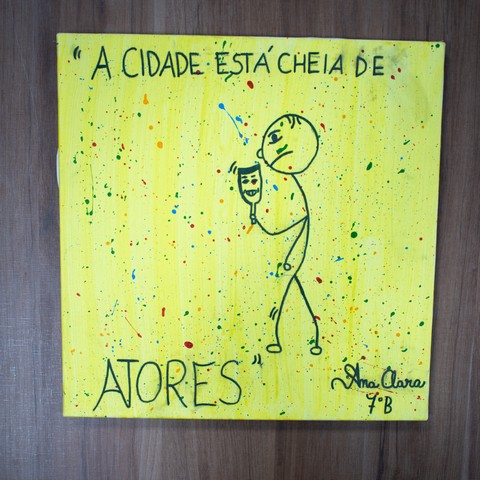 "A CIDADE ESTÁ CHEIA DE
ATORES"
Ana Clara
7°B